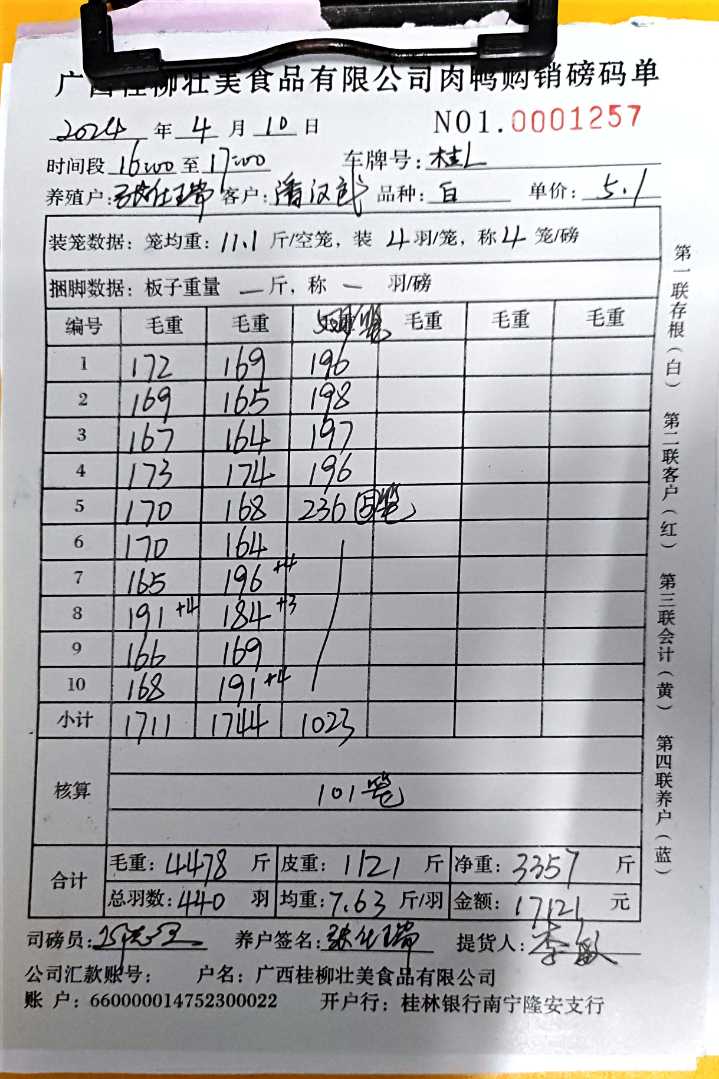 广西桂柳壮美食品有限公司肉鸭购销磅码单
2024 年 4 月 10 日 NO1.0001257
时间段 16:00 至 17:00 车牌号: 桂L
养殖户: 客户: 潘汉武 品种: 白 单价: 5.1
装笼数据: 笼均重: 11.1 斤/空笼, 装 4 羽/笼, 称 4 笼/磅
捆脚数据: 板子重量 — 斤, 称 — 羽/磅
编号 毛重 毛重 毛重 毛重 毛重
1 172 169 196
2 169 165 198
3 167 164 197
4 173 174 196
5 170 168 236
6 170 164
7 165 196 +4
8 191 +4 184 +3
9 166 169
10 168 191 +4
小计 1711 1744 1023
核算 101笼
合计 毛重: 4478 斤 皮重: 1121 斤 净重: 3357 斤
总羽数: 440 羽 均重: 7.63 斤/羽 金额: 17121 元
司磅员: 养户签名: 提货人: 李敏
公司汇款账号: 户名: 广西桂柳壮美食品有限公司
账 户: 660000014752300022 开户行: 桂林银行南宁隆安支行
第一联存根(白) 第二联客户(红) 第三联会计(黄) 第四联养户(蓝)